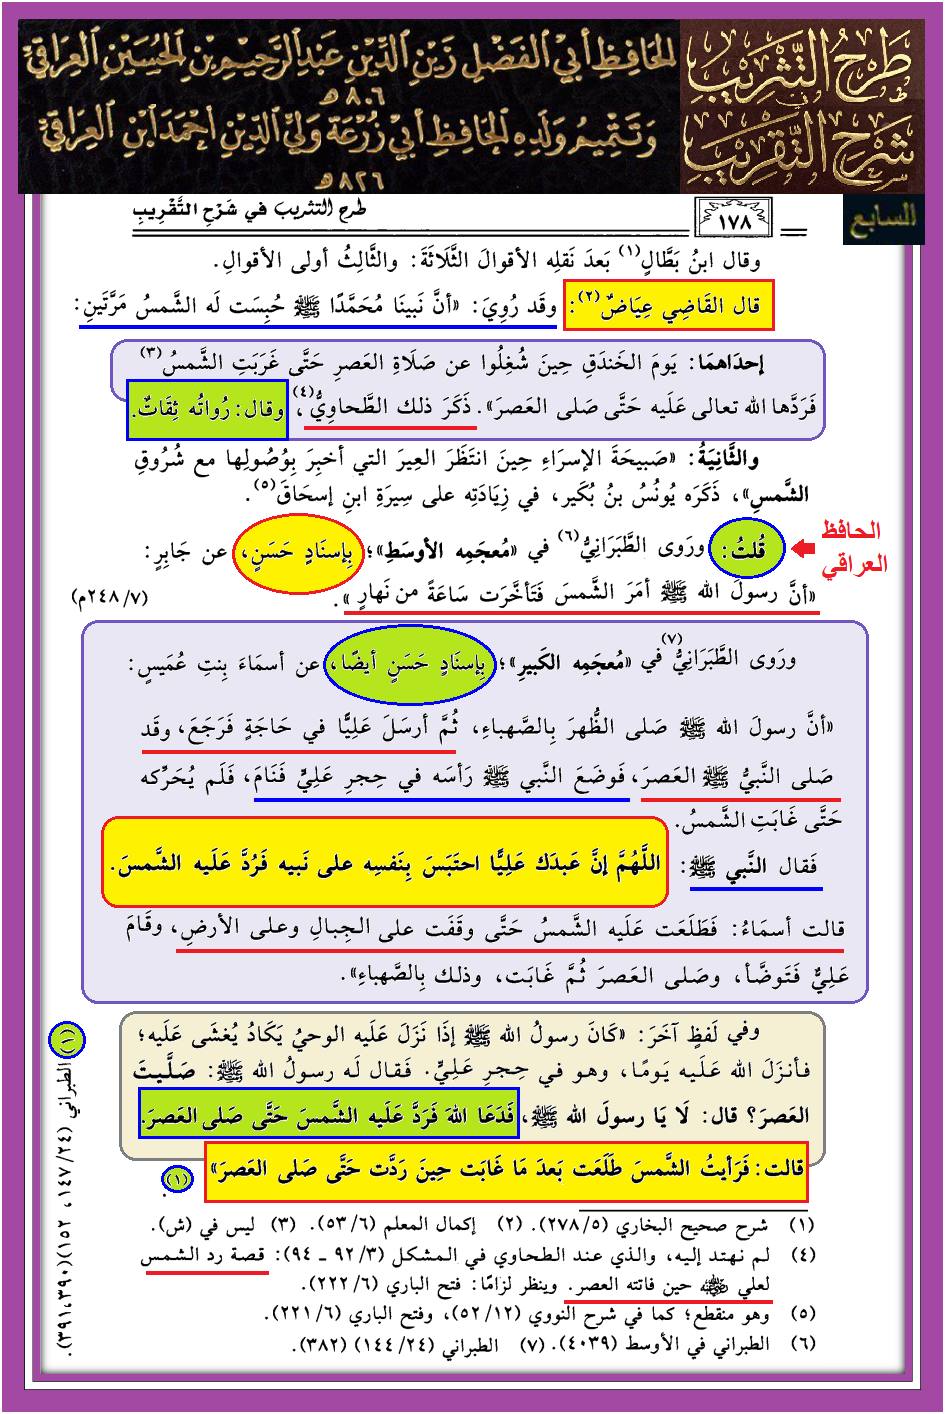 طَرْحُ التَّثْرِيبِ
في
شَرْحِ التَّقْرِيبِ
للحَافِظِ أَبِي الفَضْلِ زَيْنِ الدِّيْنِ عَبْدِ الرَّحِيْمِ بْنِ الحُسَيْنِ العِرَاقِيِّ
٨٠٦ هـ
وَتَتْمِيمُ وَلَدِهِ الحَافِظِ أَبِي زُرْعَةَ وَلِيِّ الدِّيْنِ أَحْمَدَ ابْنِ العِرَاقِيِّ
٨٢٦ هـ
السابع
١٧٨
طرح التثريبَ في شَرْحِ التَّقْرِيبِ
وقال ابنُ بَطَّالٍ(١) بَعدَ نَقلِه الأقوالَ الثَّلَاثَةَ: والثَّالِثُ أولى الأقوالِ.
قال القَاضِي عِيَاضٌ(٢): وقَد رُوِيَ: «أنَّ نَبِينَا مُحَمَّدًا ﷺ حُبِسَت لَه الشَّمسُ مَرَّتَينِ:
إحدَاهمَا: يَومَ الخَندَقِ حِينَ شُغِلُوا عن صَلَاةِ العَصرِ حَتَّى غَرَبَتِ الشَّمسُ(٣)
فَرَدَّها الله تعالى عَلَيه حَتَّى صَلى العَصرَ». ذَكَرَ ذلك الطَّحاوِيُّ(٤)، وقال: رُواتُه ثِقَاتٌ.
والثَّانِيَةُ: «صَبِيحَةَ الإسرَاءِ حِينَ انتَظَرَ العِيرَ التي أخبِرَ بِوُصُولِها مع شُرُوقِ
الشَّمسِ»، ذَكَرَه يُونُسُ بنُ بُكَير، في زِيَادَتِه على سِيرَةِ ابنِ إسحَاقَ(٥).
قُلتُ: ورَوى الطَّبَرَانِيُّ(٦) في «مُعجَمِه الأوسَطِ»؛ بِإسنَادٍ حَسَنٍ، عن جَابِرٍ:
الحافظ
العراقي
«أنَّ رسولَ الله ﷺ أمَرَ الشَّمسَ فَتَأخَّرَت سَاعَةً من نَهارٍ».
(٢٤٨/٧م)
ورَوى الطَّبَرَانِيُّ(٧) في «مُعجَمِه الكَبِيرِ»؛ بِإسنَادٍ حَسَنٍ أيضًا، عن أسمَاءَ بِنتِ عُمَيسٍ:
«أنَّ رسولَ الله ﷺ صَلى الظُّهرَ بِالصَّهباءِ، ثُمَّ أرسَلَ عَلِيًّا في حَاجَةٍ فَرَجَعَ، وقَد
صَلى النَّبيُّ ﷺ العَصرَ، فَوضَعَ النَّبي ﷺ رَأسَه في حِجرِ عَلِيٍّ فَنَامَ، فَلَم يُحَرِّكه
حَتَّى غَابَتِ الشَّمسُ.
فَقال النَّبي ﷺ: اللَّهُمَّ إنَّ عَبدَك عَلِيًّا احتَبَسَ بِنَفسِه على نَبيه فَرُدَّ عَلَيه الشَّمسَ.
قالت أسمَاءُ: فَطَلَعَت عَلَيه الشَّمسُ حَتَّى وقَفَت على الجِبالِ وعلى الأرضِ، وقَامَ
عَلِيٌّ فَتَوضَّأ، وصَلى العَصرَ ثُمَّ غَابَت، وذلك بِالصَّهباءِ».
وفي لَفظٍ آخَرَ: «كَانَ رسولُ الله ﷺ إذَا نَزَلَ عَلَيه الوحيُ يَكَادُ يُغشَى عَلَيه؛
فأنزَلَ الله عَلَيه يَومًا، وهو في حِجرِ عَلِيٍّ. فَقال لَه رسولُ الله ﷺ: صَلَّيتَ
العَصرَ؟ قال: لَا يَا رسولَ الله ﷺ، فَدَعَا اللهَ فَرَدَّ عَلَيه الشَّمسَ حَتَّى صَلى العَصرَ.
قالت: فَرَأيتُ الشَّمسَ طَلَعَت بَعدَ مَا غَابَت حِينَ رَدَّت حَتَّى صَلى العَصرَ» (١).
(١) شرح صحيح البخاري (٢٧٨/٥). (٢) إكمال المعلم (٥٣/٦). (٣) ليس في (ش).
(٤) لم نهتد إليه، والذي عند الطحاوي في المشكل (٩٢/٣ ـ ٩٤): قصة رد الشمس
لعلي ﵁ حين فاتته العصر. وينظر لزامًا: فتح الباري (٢٢٢/٦).
(٥) وهو منقطع؛ كما في شرح النووي (٥٢/١٢)، وفتح الباري (٢٢١/٦).
(٦) الطبراني في الأوسط (٤٠٣٩). (٧) الطبراني (١٤٤/٢٤) (٣٨٢).
(١) الطبراني (١٤٧/٢٤، ١٥٢)(٣٩٠،٣٩١).